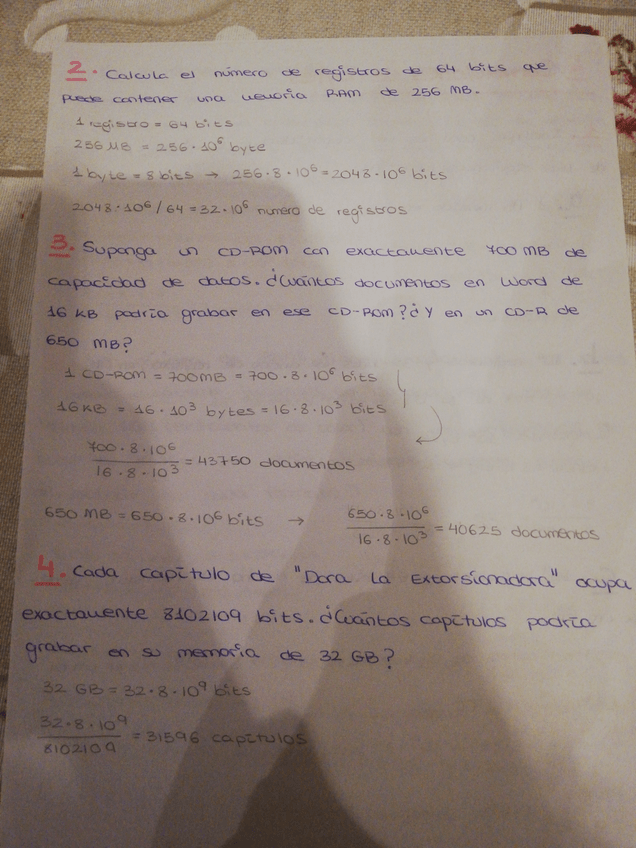 2. Calcula el número de registros de 64 bits que
puede contener una memoria RAM de 256 MB.
1 registro = 64 bits
256 MB = 256 · 10⁶ byte
1 byte = 8 bits → 256 · 8 · 10⁶ = 2048 · 10⁶ bits
2048 · 10⁶ / 64 = 32 · 10⁶ numero de registros
3. Suponga un CD-ROM con exactamente 700 MB de
capacidad de datos. ¿Cuántos documentos en Word de
16 KB podría grabar en ese CD-ROM? ¿Y en un CD-R de
650 MB?
1 CD-ROM = 700 MB = 700 · 8 · 10⁶ bits
16 KB = 16 · 10³ bytes = 16 · 8 · 10³ bits
700 · 8 · 10⁶
16 · 8 · 10³ = 43750 documentos
650 MB = 650 · 8 · 10⁶ bits → 650 · 8 · 10⁶
16 · 8 · 10³ = 40625 documentos
4. Cada capítulo de "Dora La Extorsionadora" ocupa
exactamente 8102109 bits. ¿Cuántos capítulos podría
grabar en su memoria de 32 GB?
32 GB = 32 · 8 · 10⁹ bits
32 · 8 · 10⁹
8102109 = 31596 capítulos